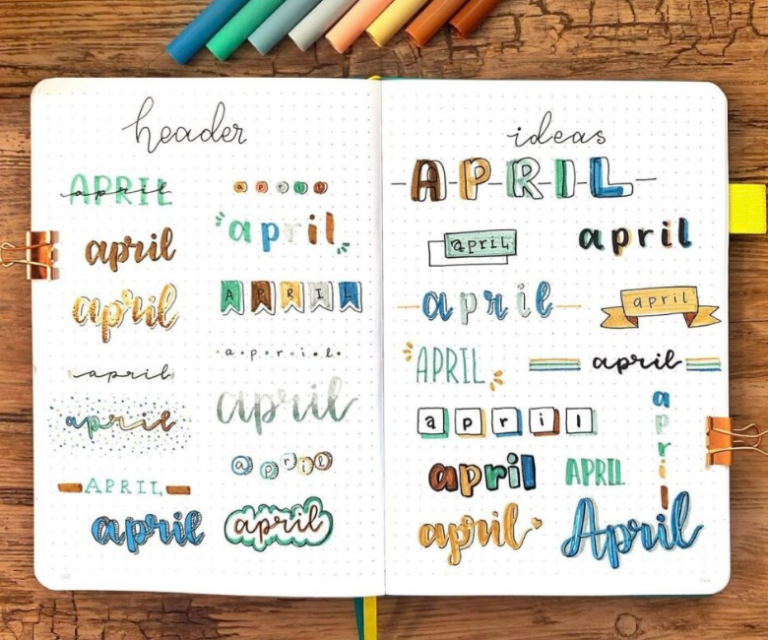 header
APRIL
april
april
april
april
april
april
APRIL
april
april
april
APRIL
april
april
april
april
ideas
APRIL
april
april
april
april
APRIL
april
april
april
april
APRIL
april
April